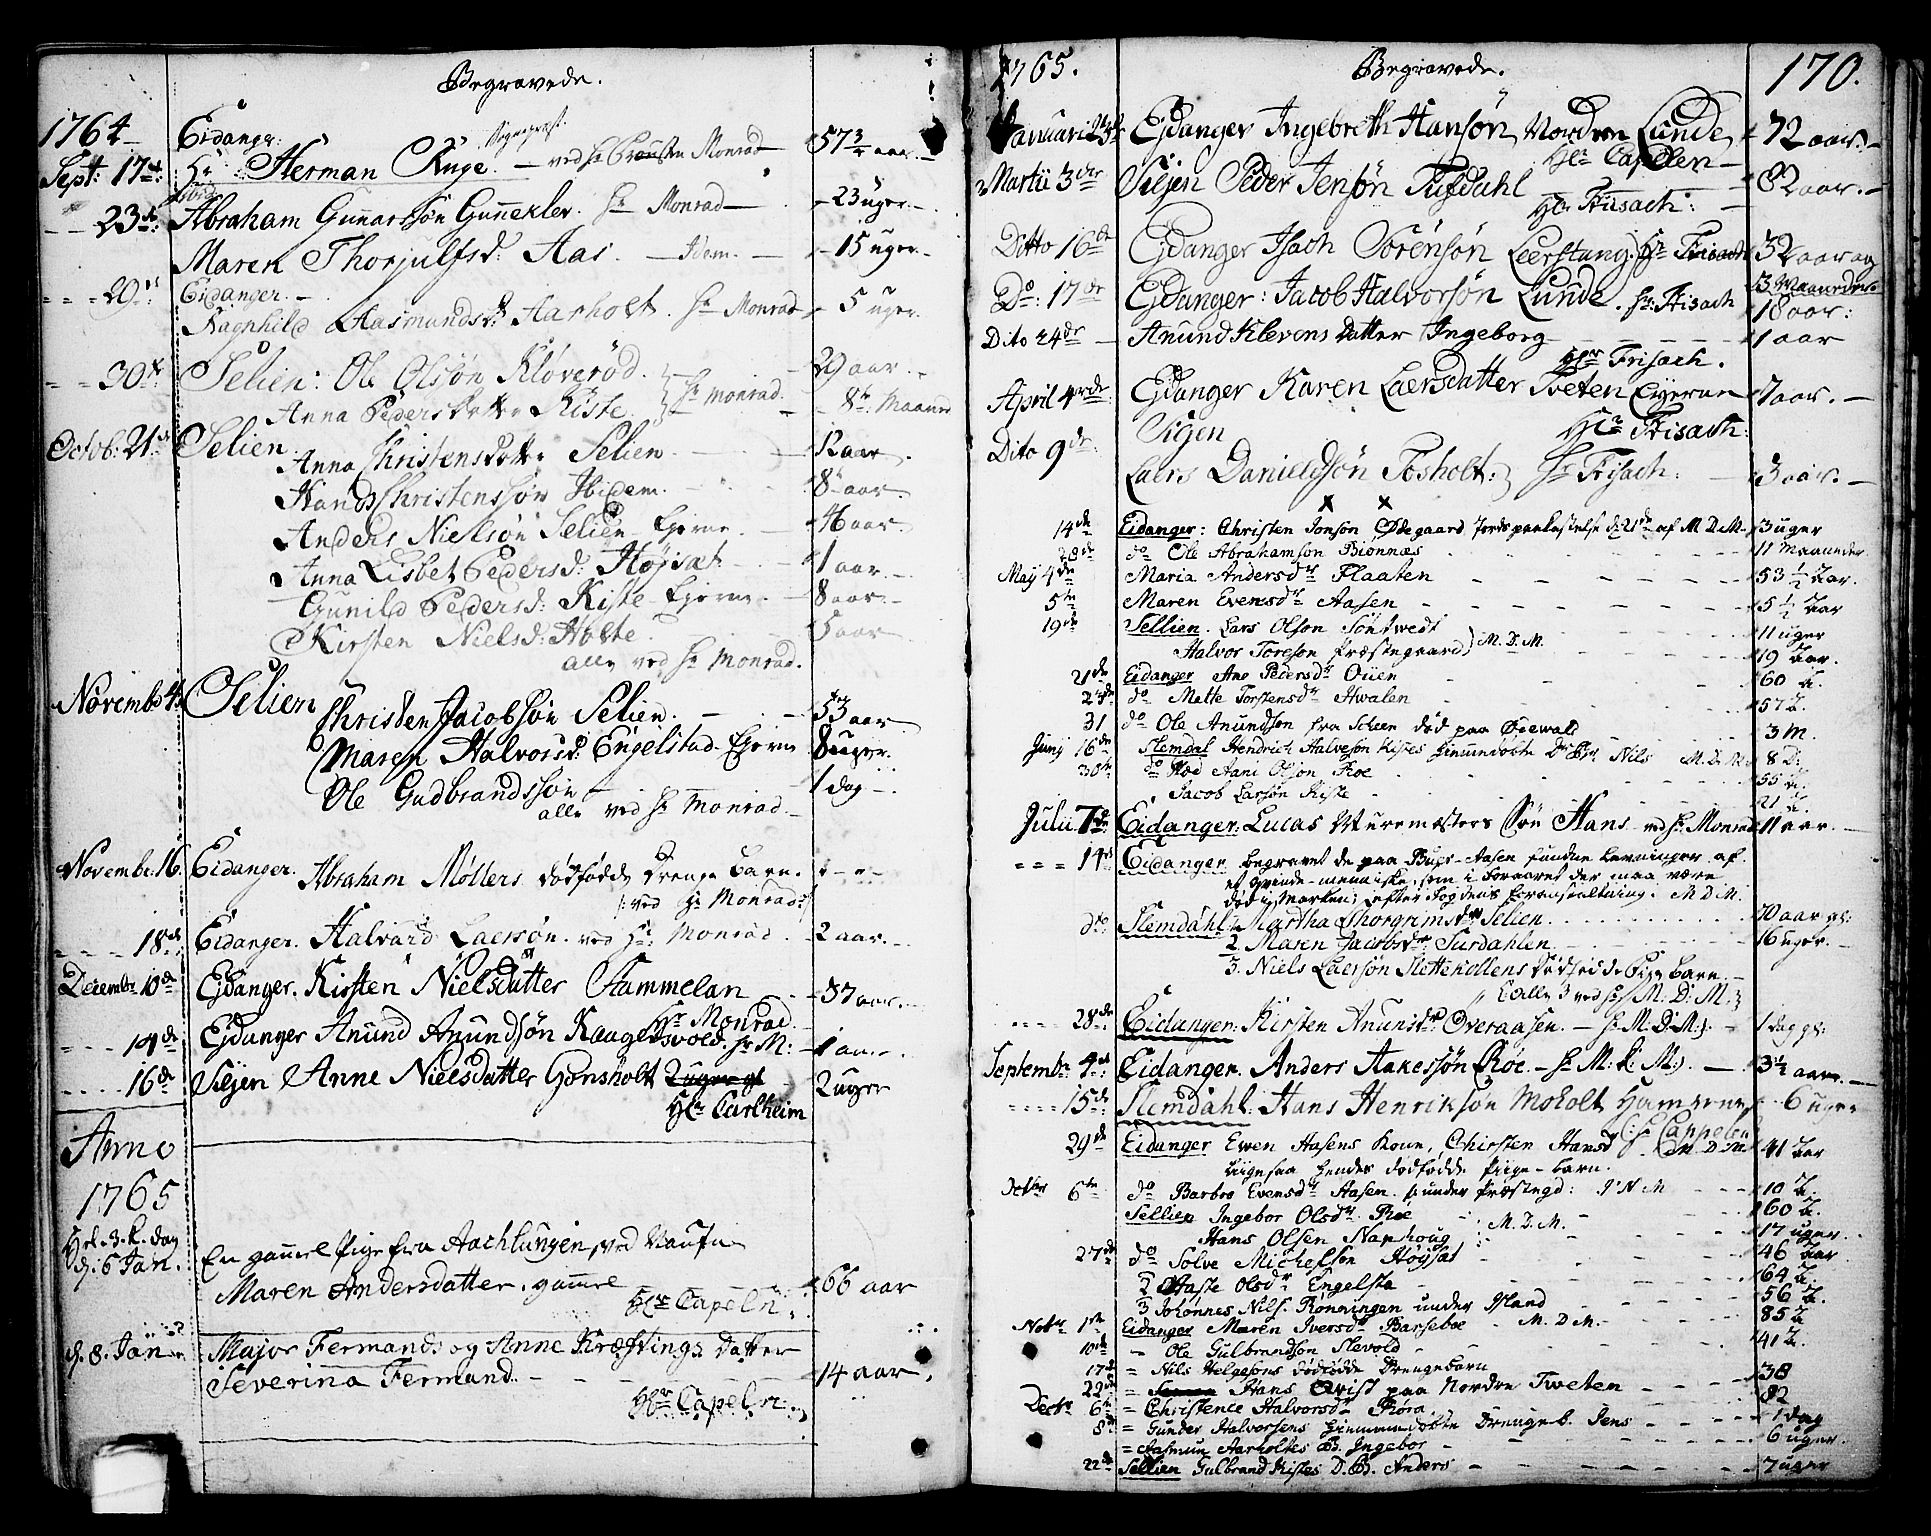 Begravede.
1764
Eidanger.
Sept: 17de Hr Herman Ruge. Sognepræst. — ved Hr Prousten Monrad — 57 3/4 aar.
23de Abraham Gunnarssøn Gunneklev. Hr Monrad — 23 uger.
Maren Thorjulfsd. Aas. — Idem. — 15 uger.
29de Eidanger. —
Ragnhild Aasmundsd: Aarholt. Hr Monrad — 5 uger.
30te Selien: Ole Olsøn Kløverød. — 29 aar.
Anna Pedersdatter Kiste. Hr Monrad. — 8te Maaned
Octob: 21de Selien.
Anna Christensdatter Selien. — 12 aar.
Hands Christenssøn Ibidem. — 8te aar.
Anders Nielsøn Selien Ejerne — 46 aar.
Anna Lisbet Pedersd: Højsæt — 1 aar.
Gunild Pedersd: Kiste Ejerne — 8 aar.
Kirsten Nielsd: Holte. — 5 aar
alle ved Hr Monrad.
Novembr. 4de Selien
Christen Jacobsøn Selien. — 53 aar
Maren Halvorsd: Engelstad Ejerne 8 uger.
Ole Gudbrandssøn — 1 dag
alle ved Hr Monrad.
Novembr. 16. Eidanger. Abraham Møllers dødfødde Drenge Barn.
/: ved Hr Monrad :/
18de Eidanger. Halvard Laersøn. ved Hr: Monrad. — 2 aar.
Decembr 10de Ejdanger. Kirsten Nielsdatter Stammelan — 37 aar.
Hr Monrad.
14de Ejdanger Anund Anundsøn Kaagersvold. Hr M: — 1 aar.
16de Siljen Anne Nielsdatter Gonsholt 2 uger gl — 2 uger
Hr Carlheim
Anno
1765
Hel. 3. K. dag
d: 6 Jan.
En gammel Pige fra Aachlungen, ved Naufn
Maren Andersdatter, gammel — 66 aar
Hr Capeln
d. 8. Jan Major Fermands og Anne Kræftings Datter
Severina Fermand. — 14 aar.
Hr Capeln.
1765. Begravede. 170.
Januari 23de Ejdanger Ingebreth Hansøn Nordren Lunde 72 aar.
Hr Capelen —
Martii 3die Siljen Peder Jensøn Tufsdahl — 82 aar.
Hr Frisach:
Ditto 16de Ejdanger Isach Sørensøn Leerstang. Hr Frisach 32 aar og
3 Maaneder
Do: 17de Ejdanger: Jacob Halvorsøn Lunde. Hr: Frisach 18 aar:
Dito 24de — Anund Klevens Datter Ingeborg — 1 aar
Hr Frisach.
April 4rde Ejdanger Karen Laersdatter Tveten Ejeren 7 aar. —
Hr Frisach.
Dito 9de Sigen
Laers Danieldsøn Fosholt: Hr Frisach: — 3 aar. —
x x
14de Eidanger: Christen Jonsøn Ødegaard Jords paakastelse d: 21de af M D. M. 3 uger
28de do Ole Abrahamsøn Biønnæs 11 Maaneder
May 4de Maria Andersdr Plaaten 53 1/2 Aar.
5te Maren Evensdr Aasen 5 1/2 Aar
19de Sellien. Lars Olson Søntwedt 11 uger
Halvor Toreson Præstegaard) M. D. M. 19 Aar.
21de Eidanger Ane Pedersdr Ouen 60 A.
28de do Mette Torstensdr Hwalen 57 A.
31 do Ole Anundson fra Scheen død paa Ørewald 3 M.
Junij 16de Slemdal Hendrich Halvesøn Kistes hiemmedøbte D. B. Nils M. D. M. 8 D.
30te do Aani Olson Roe 55 A.
Jacob Larsøn Kiste 21 A.
Julii 7de Eidanger: Lucas Muremesters Søn Hans ved Hr: Monrad 11 aar.
14de Eidanger Begravet de paa Buer-Aasen fundne levninger af
et qvinde-menniske, som i Foraaret der maa være
død i Marken; efter Fogdens foranstaltning. M D M.
do Slemdahl: Martha Thorgrimsdr Selien. 70 aar gl:
2. Maren Jacobsdr: Surdahlen. 16 uger.
3. Niels Laersøn Slettekollens Dødfødde Pige Barn.
Alle 3 ved Hr M: D: M:
28de Eidanger: Kirsten Anunsdr Overaasen. — Hr M: D: M: — 1 dag gl:
Septembr. 4de Eidanger. Anders Aakessøn Røe. — Hr M: D: M: — 3 1/2 aar.
15de Slemdahl: Hans Henriksøn Moholt Hamerne 6 uger
Hr Cappelen
29de Eidanger Ewen Aasens Kone, Chirsten Hansd M. D. M. 41 Aar
ligesaa hendes dødfødde Pige-barn.
Octbr 6te do Barbro Evensdr Aasen. p: under Præstegd: M 10 A.
Sellien Ingebor Olsdr. Roe 60 A.
Hans Olsen Naphoug M. D. M. 17 uger.
27de do Solve Michelson Høgsæt 46 Aar
2 Aaste Olsdr Engelsta 64 A.
3 Johannes Nils: Rønningen under Island 56 A.
Nobr 1ste Eidanger Maren Iversdr Barseboe M. D. M. 85 A
10de — Ole Gulbrandson Slevold 41 A.
17de = Nils Helgesons dødfødde Drengebarn
22de = Hans Qvist paa Nordre Tweten 38
Decbr 6te = Christence Halvorsdr Røra. 82
8de = Gunder Halvorsens hjemmedøbte Drengeb. Jens 1 dag
= Aasmun Aarholtes B. Ingebor 6 uger.
22de Sellien Gulbrand Kistes D. B. Anders — 7 uger